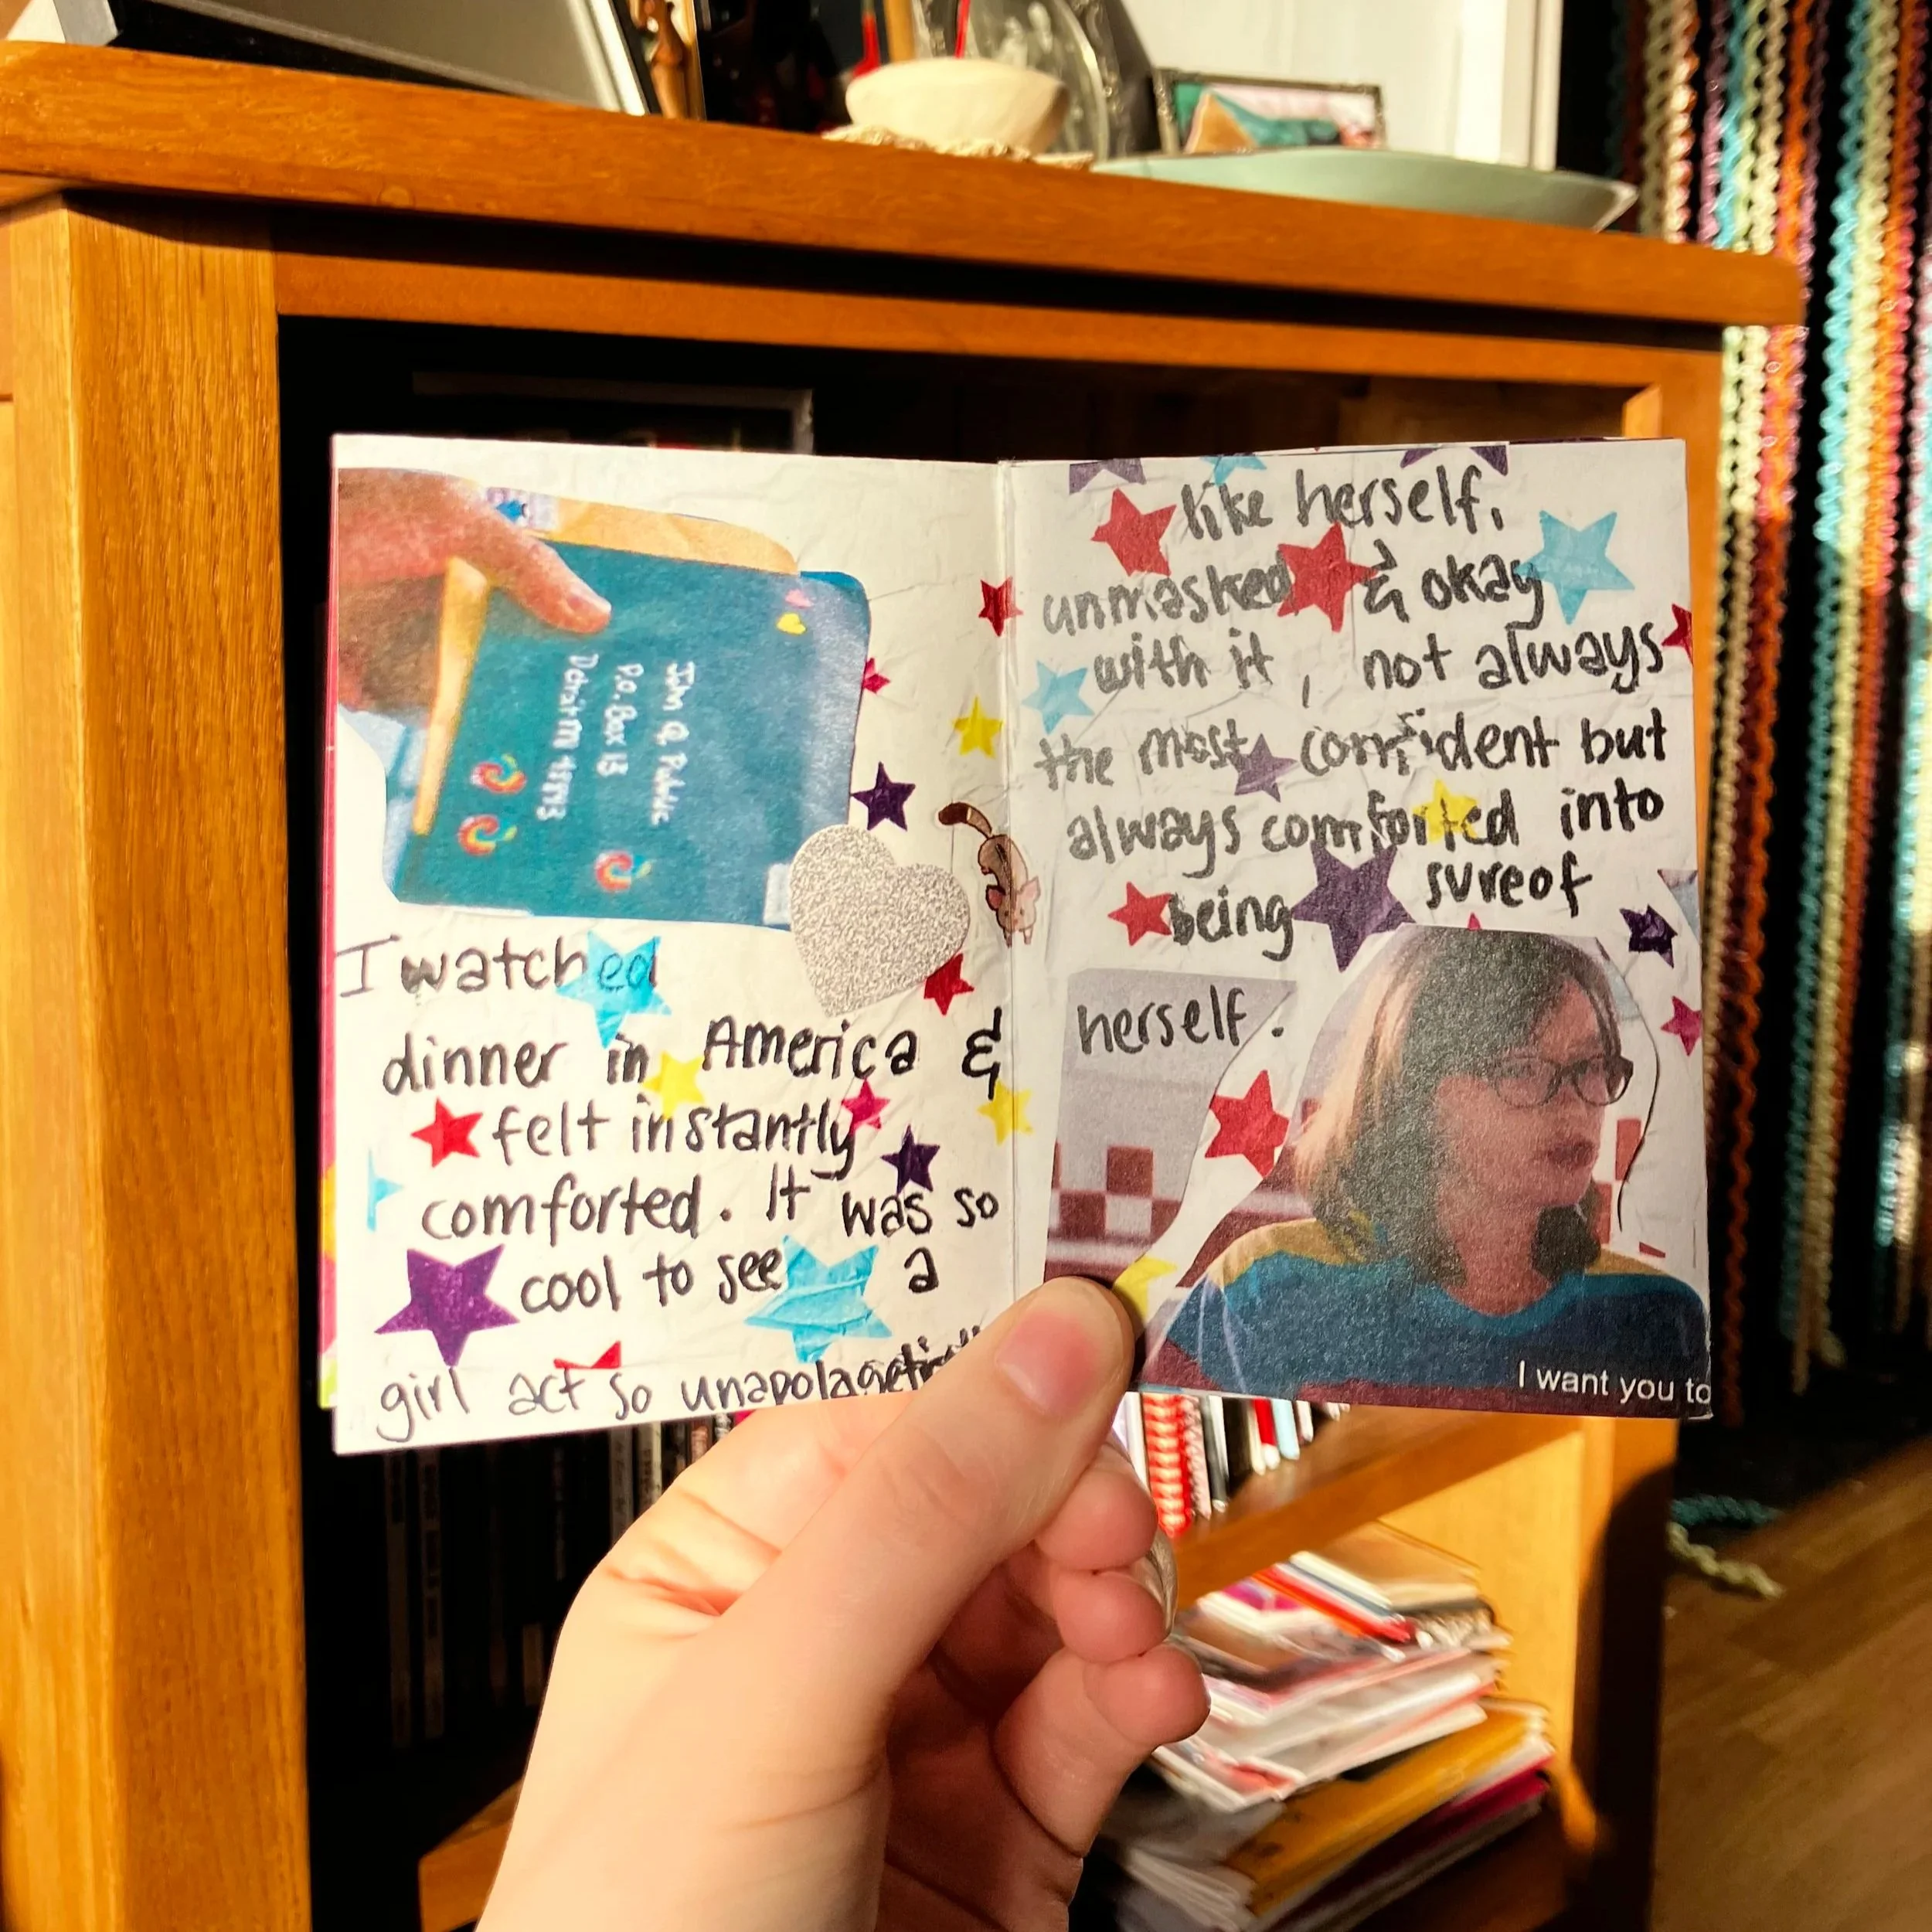 John Q Public
P.O. Box 13
Detroit
I watched
dinner in America &
felt instantly
comforted. It was so
cool to see a
girl act so
like herself,
unmasked & okay
with it, not always
the most confident but
always comforted into
being sure of
herself.
I want you to